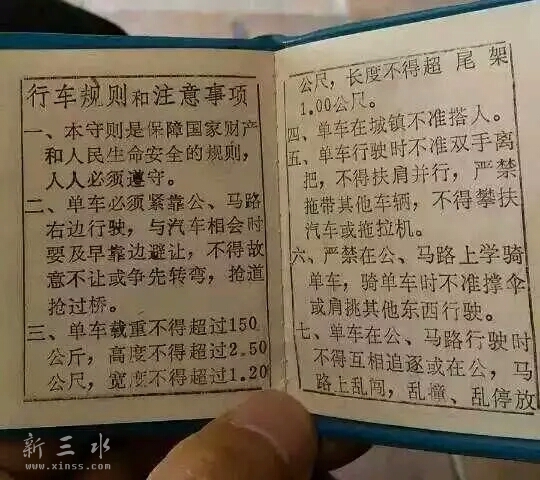 行车规则和注意事项
一、本守则是保障国家财产
和人民生命安全的规则，
人人必须遵守。
二、单车必须紧靠公、马路
右边行驶，与汽车相会时
要及早靠边避让，不得故
意不让或争先转弯，抢道
抢过桥。
三、单车载重不得超过150
公斤，高度不得超过2.50
公尺，宽度不得超过1.20
公尺，长度不得超 尾 架
1.00公尺。
四、单车在城镇不准搭人。
五、单车行驶时不准双手离
把，不得扶肩并行，严禁
拖带其他车辆，不得攀扶
汽车或拖拉机。
六、严禁在公、马路上学骑
单车，骑单车时不准撑伞
或肩挑其他东西行驶。
七、单车在公、马路行驶时
不得互相追逐或在公，马
路上乱闯，乱撞、乱停放
新三水
www.xinss.com